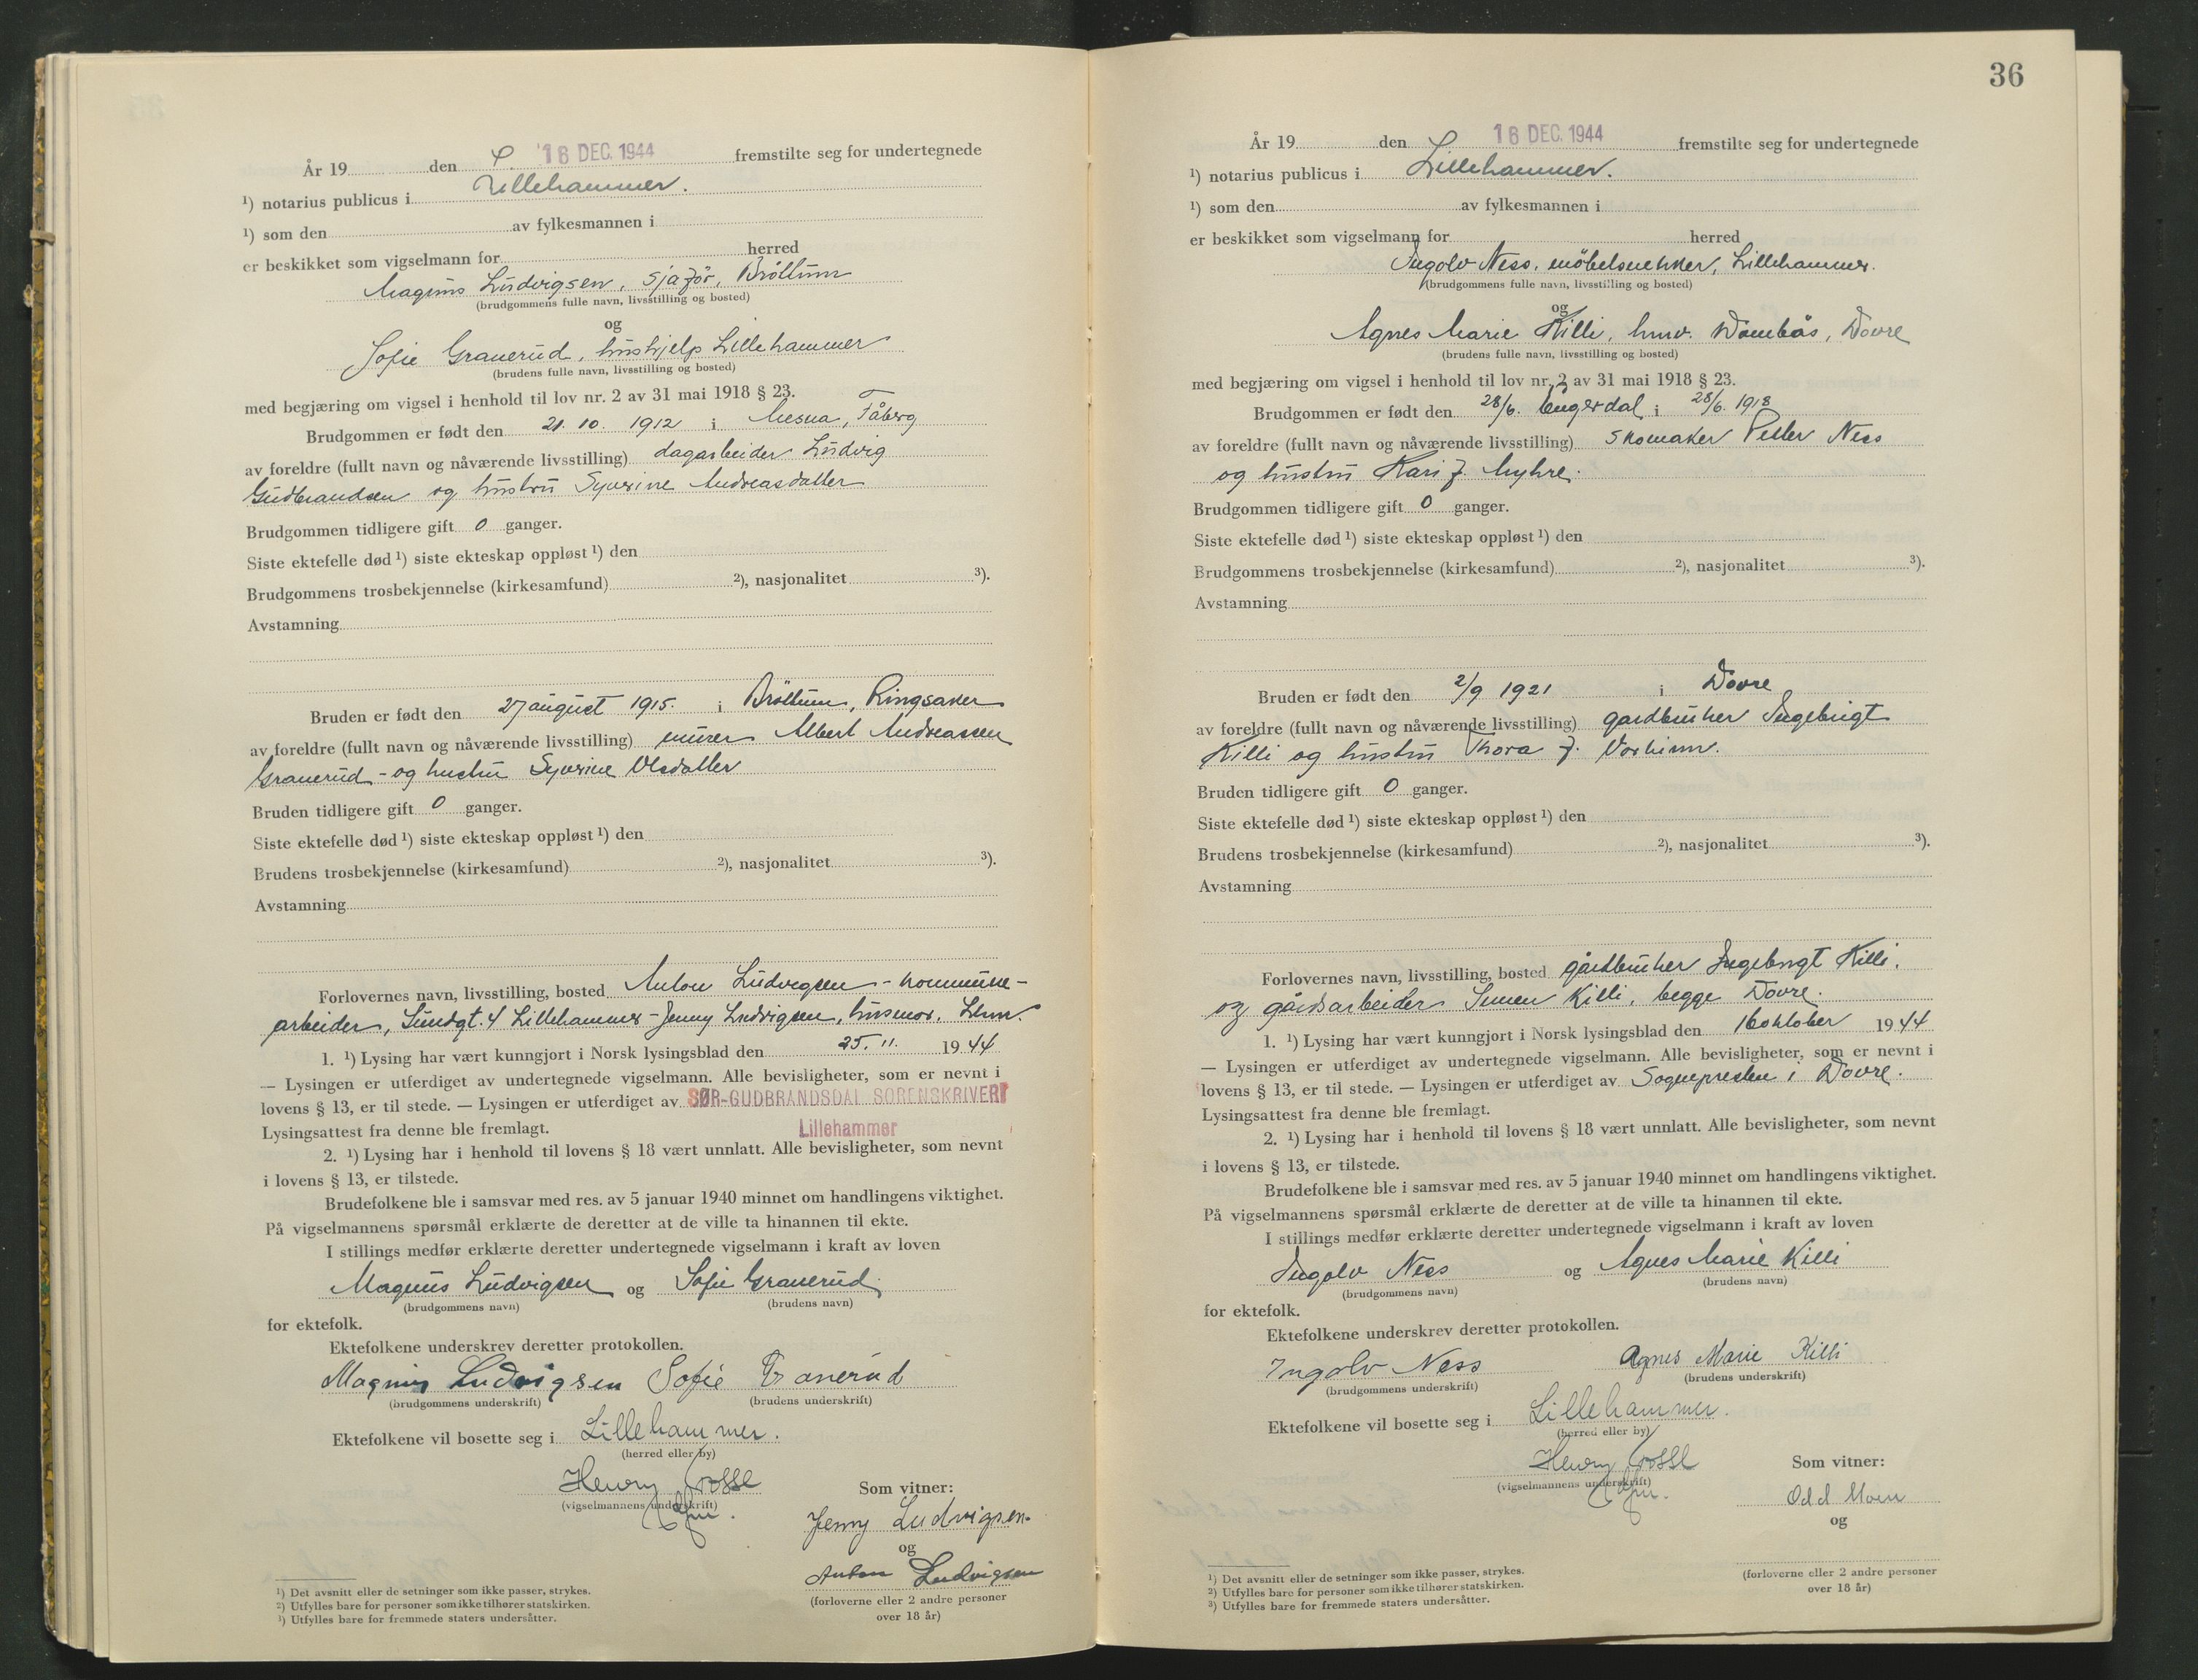 År 19 den 16 DEC. 1944 fremstilte seg for undertegnede
¹) notarius publicus i Lillehammer.
¹) som den av fylkesmannen i
er beskikket som vigselmann for herred
Magnus Ludvigsen, sjafør, Brøttum
(brudgommens fulle navn, livsstilling og bosted)
og
Sofie Granerud, hushjelp Lillehammer
(brudens fulle navn, livsstilling og bosted)
med begjæring om vigsel i henhold til lov nr. 2 av 31 mai 1918 § 23.
Brudgommen er født den 21. 10. 1912 i Mesna, Fåberg
av foreldre (fullt navn og nåværende livsstilling) dagarbeider Ludvig
Gudbrandsen og hustru Syverine Andreasdatter
Brudgommen tidligere gift 0 ganger.
Siste ektefelle død ¹) siste ekteskap oppløst ¹) den
Brudgommens trosbekjennelse (kirkesamfund) ²), nasjonalitet ³).
Avstamning
Bruden er født den 27 august 1915. i Brøttum, Ringsaker
av foreldre (fullt navn og nåværende livsstilling) murer Albert Andreassen
Granerud - og hustru Syverine Olsdatter
Bruden tidligere gift 0 ganger.
Siste ektefelle død ¹) siste ekteskap oppløst ¹) den
Brudens trosbekjennelse (kirkesamfund) ²), nasjonalitet ³).
Avstamning
Forlovernes navn, livsstilling, bosted Anton Ludvigsen - kommune-
arbeider, Sundgt. 4 Lillehammer - Jenny Ludvigsen, husmor, Lhmr
1. ¹) Lysing har vært kunngjort i Norsk lysingsblad den 25. 11. 1944
— Lysingen er utferdiget av undertegnede vigselmann. Alle bevisligheter, som er nevnt i
lovens § 13, er til stede. — Lysingen er utferdiget av SØR-GUDBRANDSDAL SORENSKRIVERI
Lysingsattest fra denne ble fremlagt. Lillehammer
2. ¹) Lysing har i henhold til lovens § 18 vært unnlatt. Alle bevisligheter, som nevnt
i lovens § 13, er tilstede.
Brudefolkene ble i samsvar med res. av 5 januar 1940 minnet om handlingens viktighet.
På vigselmannens spørsmål erklærte de deretter at de ville ta hinannen til ekte.
I stillings medfør erklærte deretter undertegnede vigselmann i kraft av loven
Magnus Ludvigsen og Sofie Granerud
(brudgommens navn) (brudens navn)
for ektefolk.
Ektefolkene underskrev deretter protokollen.
Magnus Ludvigsen Sofie Granerud
(brudgommens underskrift) (brudens underskrift)
Ektefolkene vil bosette seg i Lillehammer.
(herred eller by)
Henry
(vigselmannens underskrift)
Som vitner:
Jenny Ludvigsen
og
Anton Ludvigsen
(forloverne eller 2 andre personer
over 18 år)
¹) Det avsnitt eller de setninger som ikke passer, strykes.
²) Utfylles bare for personer som ikke tilhører statskirken.
³) Utfylles bare for fremmede staters undersåtter.
36
År 19 den 16 DEC. 1944 fremstilte seg for undertegnede
¹) notarius publicus i Lillehammer.
¹) som den av fylkesmannen i
er beskikket som vigselmann for herred
Ingolv Ness, møbelsnekker, Lillehammer.
(brudgommens fulle navn, livsstilling og bosted)
og
Agnes Marie Killi, Dombås, Dovre
(brudens fulle navn, livsstilling og bosted)
med begjæring om vigsel i henhold til lov nr. 2 av 31 mai 1918 § 23.
Brudgommen er født den 28/6. Engerdal i 28/6. 1918
av foreldre (fullt navn og nåværende livsstilling) skomaker Petter Ness
og hustru Kari f. Myhre.
Brudgommen tidligere gift 0 ganger.
Siste ektefelle død ¹) siste ekteskap oppløst ¹) den
Brudgommens trosbekjennelse (kirkesamfund) ²), nasjonalitet ³).
Avstamning
Bruden er født den 2/9 1921 i Dovre
av foreldre (fullt navn og nåværende livsstilling) gardbruker Ingebrigt
Killi og hustru Thora f. Vorkinn.
Bruden tidligere gift 0 ganger.
Siste ektefelle død ¹) siste ekteskap oppløst ¹) den
Brudens trosbekjennelse (kirkesamfund) ²), nasjonalitet ³).
Avstamning
Forlovernes navn, livsstilling, bosted gårdbruker Ingebrigt Killi,
og gårdsarbeider Simen Killi, begge Dovre.
1. ¹) Lysing har vært kunngjort i Norsk lysingsblad den 16 oktober 1944
— Lysingen er utferdiget av undertegnede vigselmann. Alle bevisligheter, som er nevnt i
lovens § 13, er til stede. — Lysingen er utferdiget av Sognepresten i Dovre.
Lysingsattest fra denne ble fremlagt.
2. ¹) Lysing har i henhold til lovens § 18 vært unnlatt. Alle bevisligheter, som nevnt
i lovens § 13, er tilstede.
Brudefolkene ble i samsvar med res. av 5 januar 1940 minnet om handlingens viktighet.
På vigselmannens spørsmål erklærte de deretter at de ville ta hinannen til ekte.
I stillings medfør erklærte deretter undertegnede vigselmann i kraft av loven
Ingolv Ness og Agnes Marie Killi
(brudgommens navn) (brudens navn)
for ektefolk.
Ektefolkene underskrev deretter protokollen.
Ingolv Ness Agnes Marie Killi
(brudgommens underskrift) (brudens underskrift)
Ektefolkene vil bosette seg i Lillehammer.
(herred eller by)
Henry
(vigselmannens underskrift)
Som vitner:
Odd Moen
og
(forloverne eller 2 andre personer
over 18 år)
¹) Det avsnitt eller de setninger som ikke passer, strykes.
²) Utfylles bare for personer som ikke tilhører statskirken.
³) Utfylles bare for fremmede staters undersåtter.